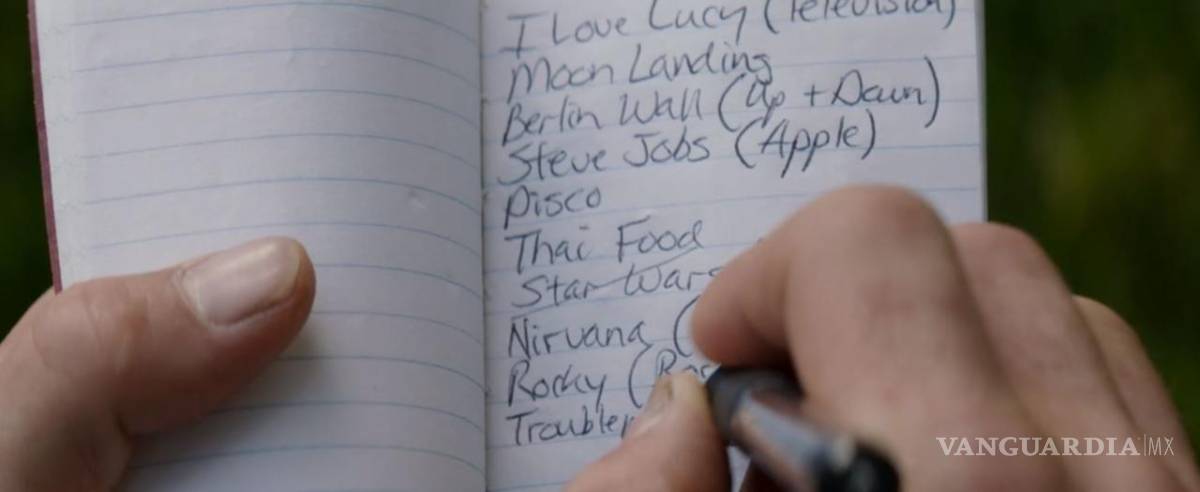 I Love Lucy (Television)
Moon Landing
Berlin Wall (Up + Down)
Steve Jobs (Apple)
Disco
Thai Food
Star Wars
Nirvana (
Rocky (
VANGUARDIA|MX